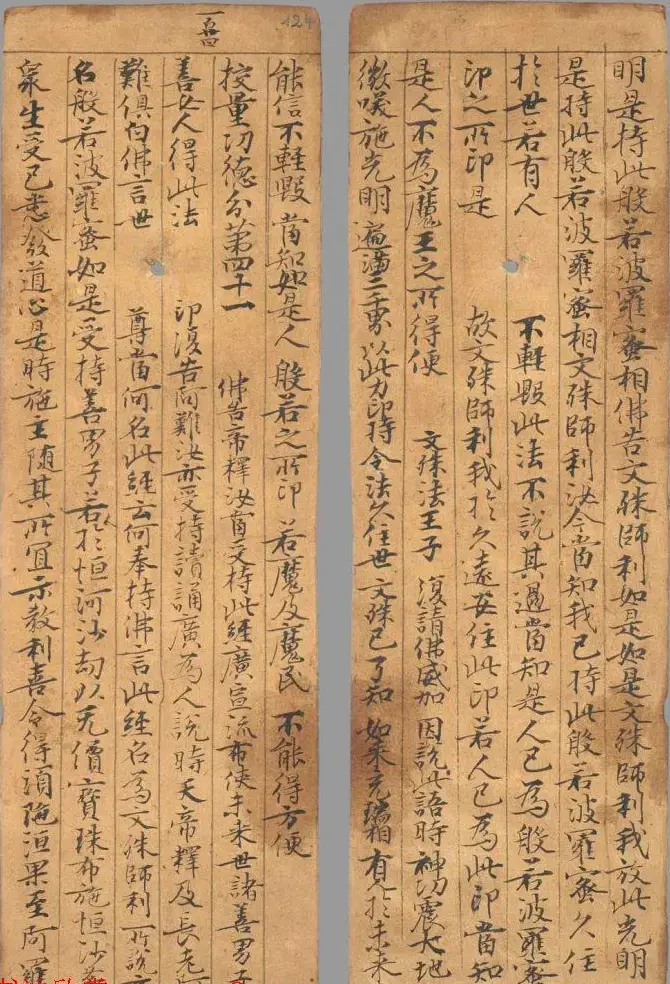 明是持此般若波羅蜜相佛告文殊師利如是如是文殊師利我放此光明
是持此般若波羅蜜相文殊師利汝今當知我已持此般若波羅蜜久住
於世若有人 不輕毀此法不說其過當知是人已為般若波羅蜜
印之所印是 故文殊師利我於久遠安住此印若人已為此印當知
是人不為魔王之所得便 文殊法王子 復請佛威加因說此語時神功震大地
微咲施光明遍滿三千界以此力印持令法久住世文殊已了知如來先瑞相有人於未來
124
能信不輕毀當知如是人 般若之所印 若魔及魔民 不能得方便
挍量功德分第四十一 佛告帝釋汝當受持此經廣宣流布使未來世諸善男子
善女人得此法 印復告阿難汝亦受持讀誦廣為人說時天帝釋及長老
難俱白佛言世 尊當何名此經云何奉持佛言此經名為文殊師利所說
名般若波羅蜜如是受持善男子若於恒河沙劫以无價寶珠布施恒沙
眾生受已悉發道心是時施主隨其所宜示教利喜令得須陁洹果至阿羅